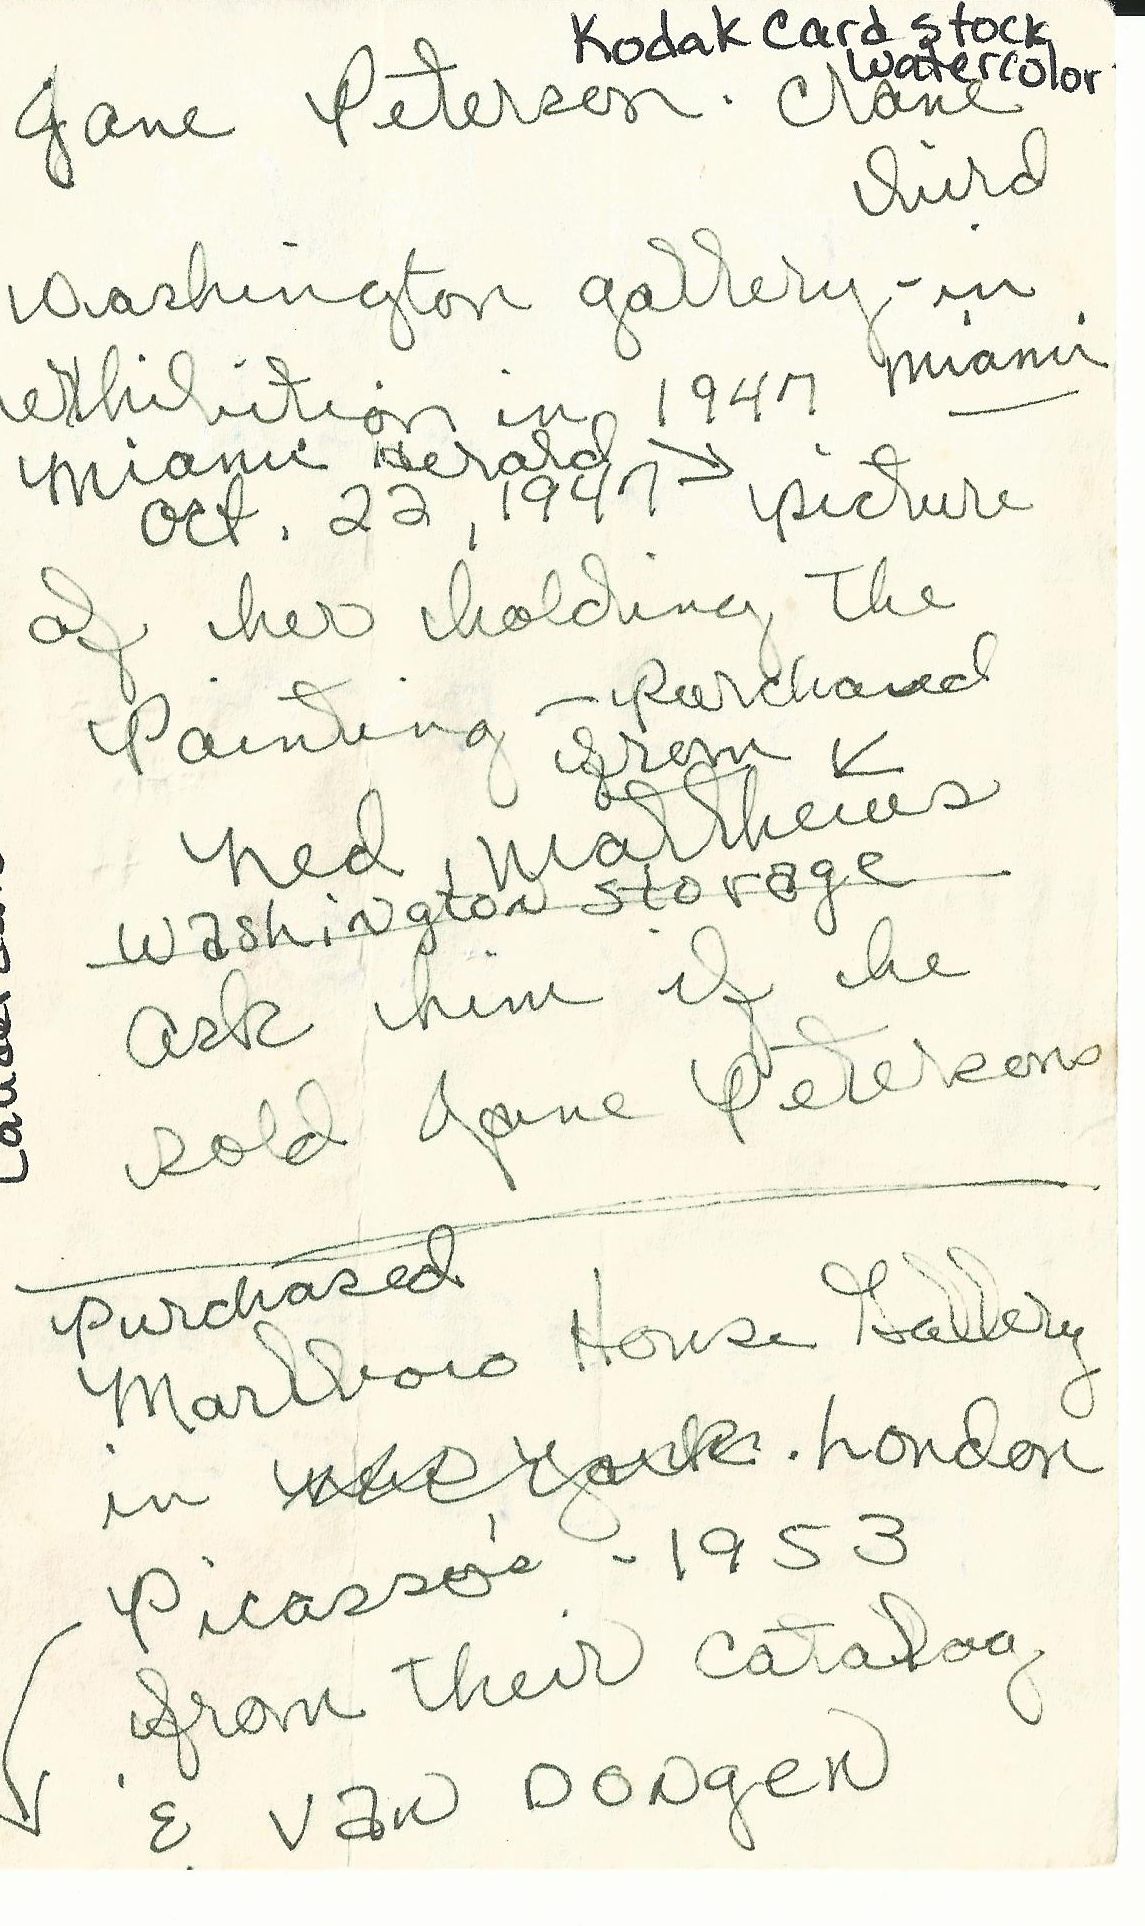 Kodak Card stock
watercolor
Jane Peterson. Crane
third
Washington gallery - in
Miami
exhibition in 1947
Miami Herald →
Oct. 22, 1947 picture
of her holding the
Painting - Purchased
from
Ned Matthews
Washington storage
Ask him if he
sold Jane Petersons
Purchased
Marlboro House Gallery
in New York. London
Picasso's - 1953
from their catalog
& Van Dongen